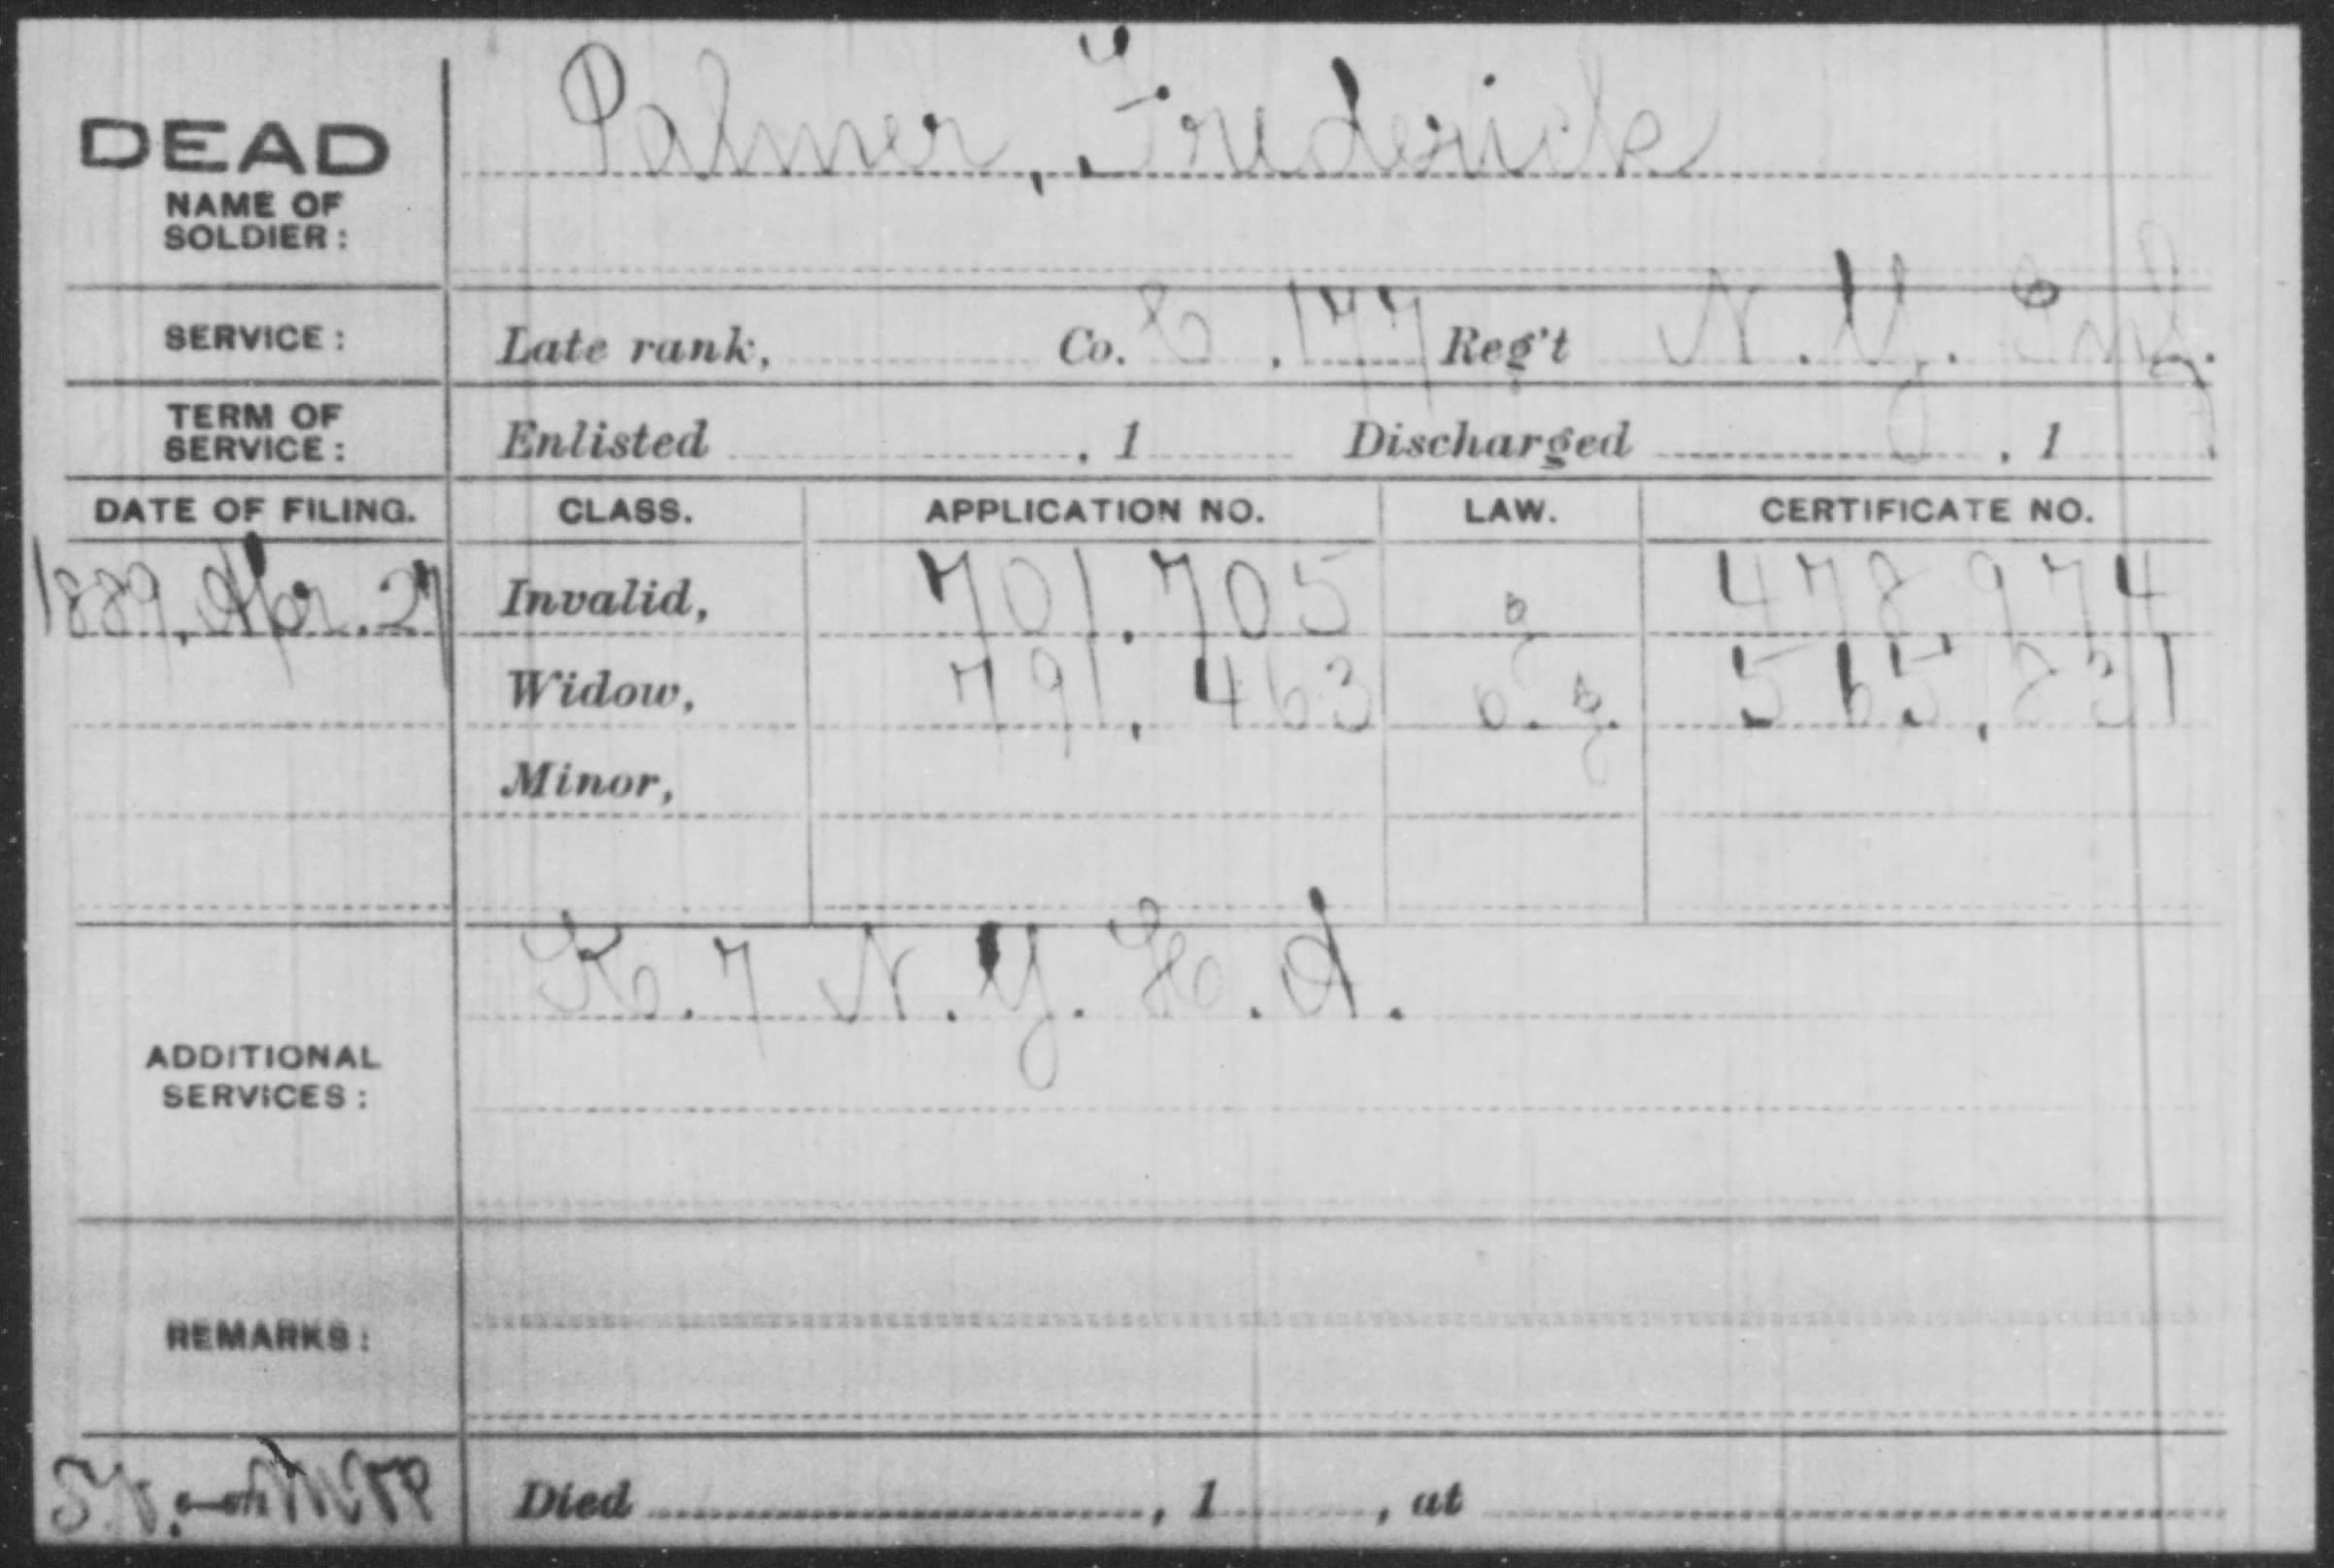 DEAD
NAME OF
SOLDIER:
Palmer, Frederick
SERVICE: Late rank, Co. E. 177 Reg't N. Y. Inf.
TERM OF
SERVICE: Enlisted , 1 Discharged , 1
DATE OF FILING. CLASS. APPLICATION NO. LAW. CERTIFICATE NO.
1889, Apr. 27 Invalid, 701.705 g 478,974
Widow, 791,463 o. g. 565,831
Minor,
ADDITIONAL
SERVICES:
K. 7 N. Y. H. A.
REMARKS:
Died , 1 , at